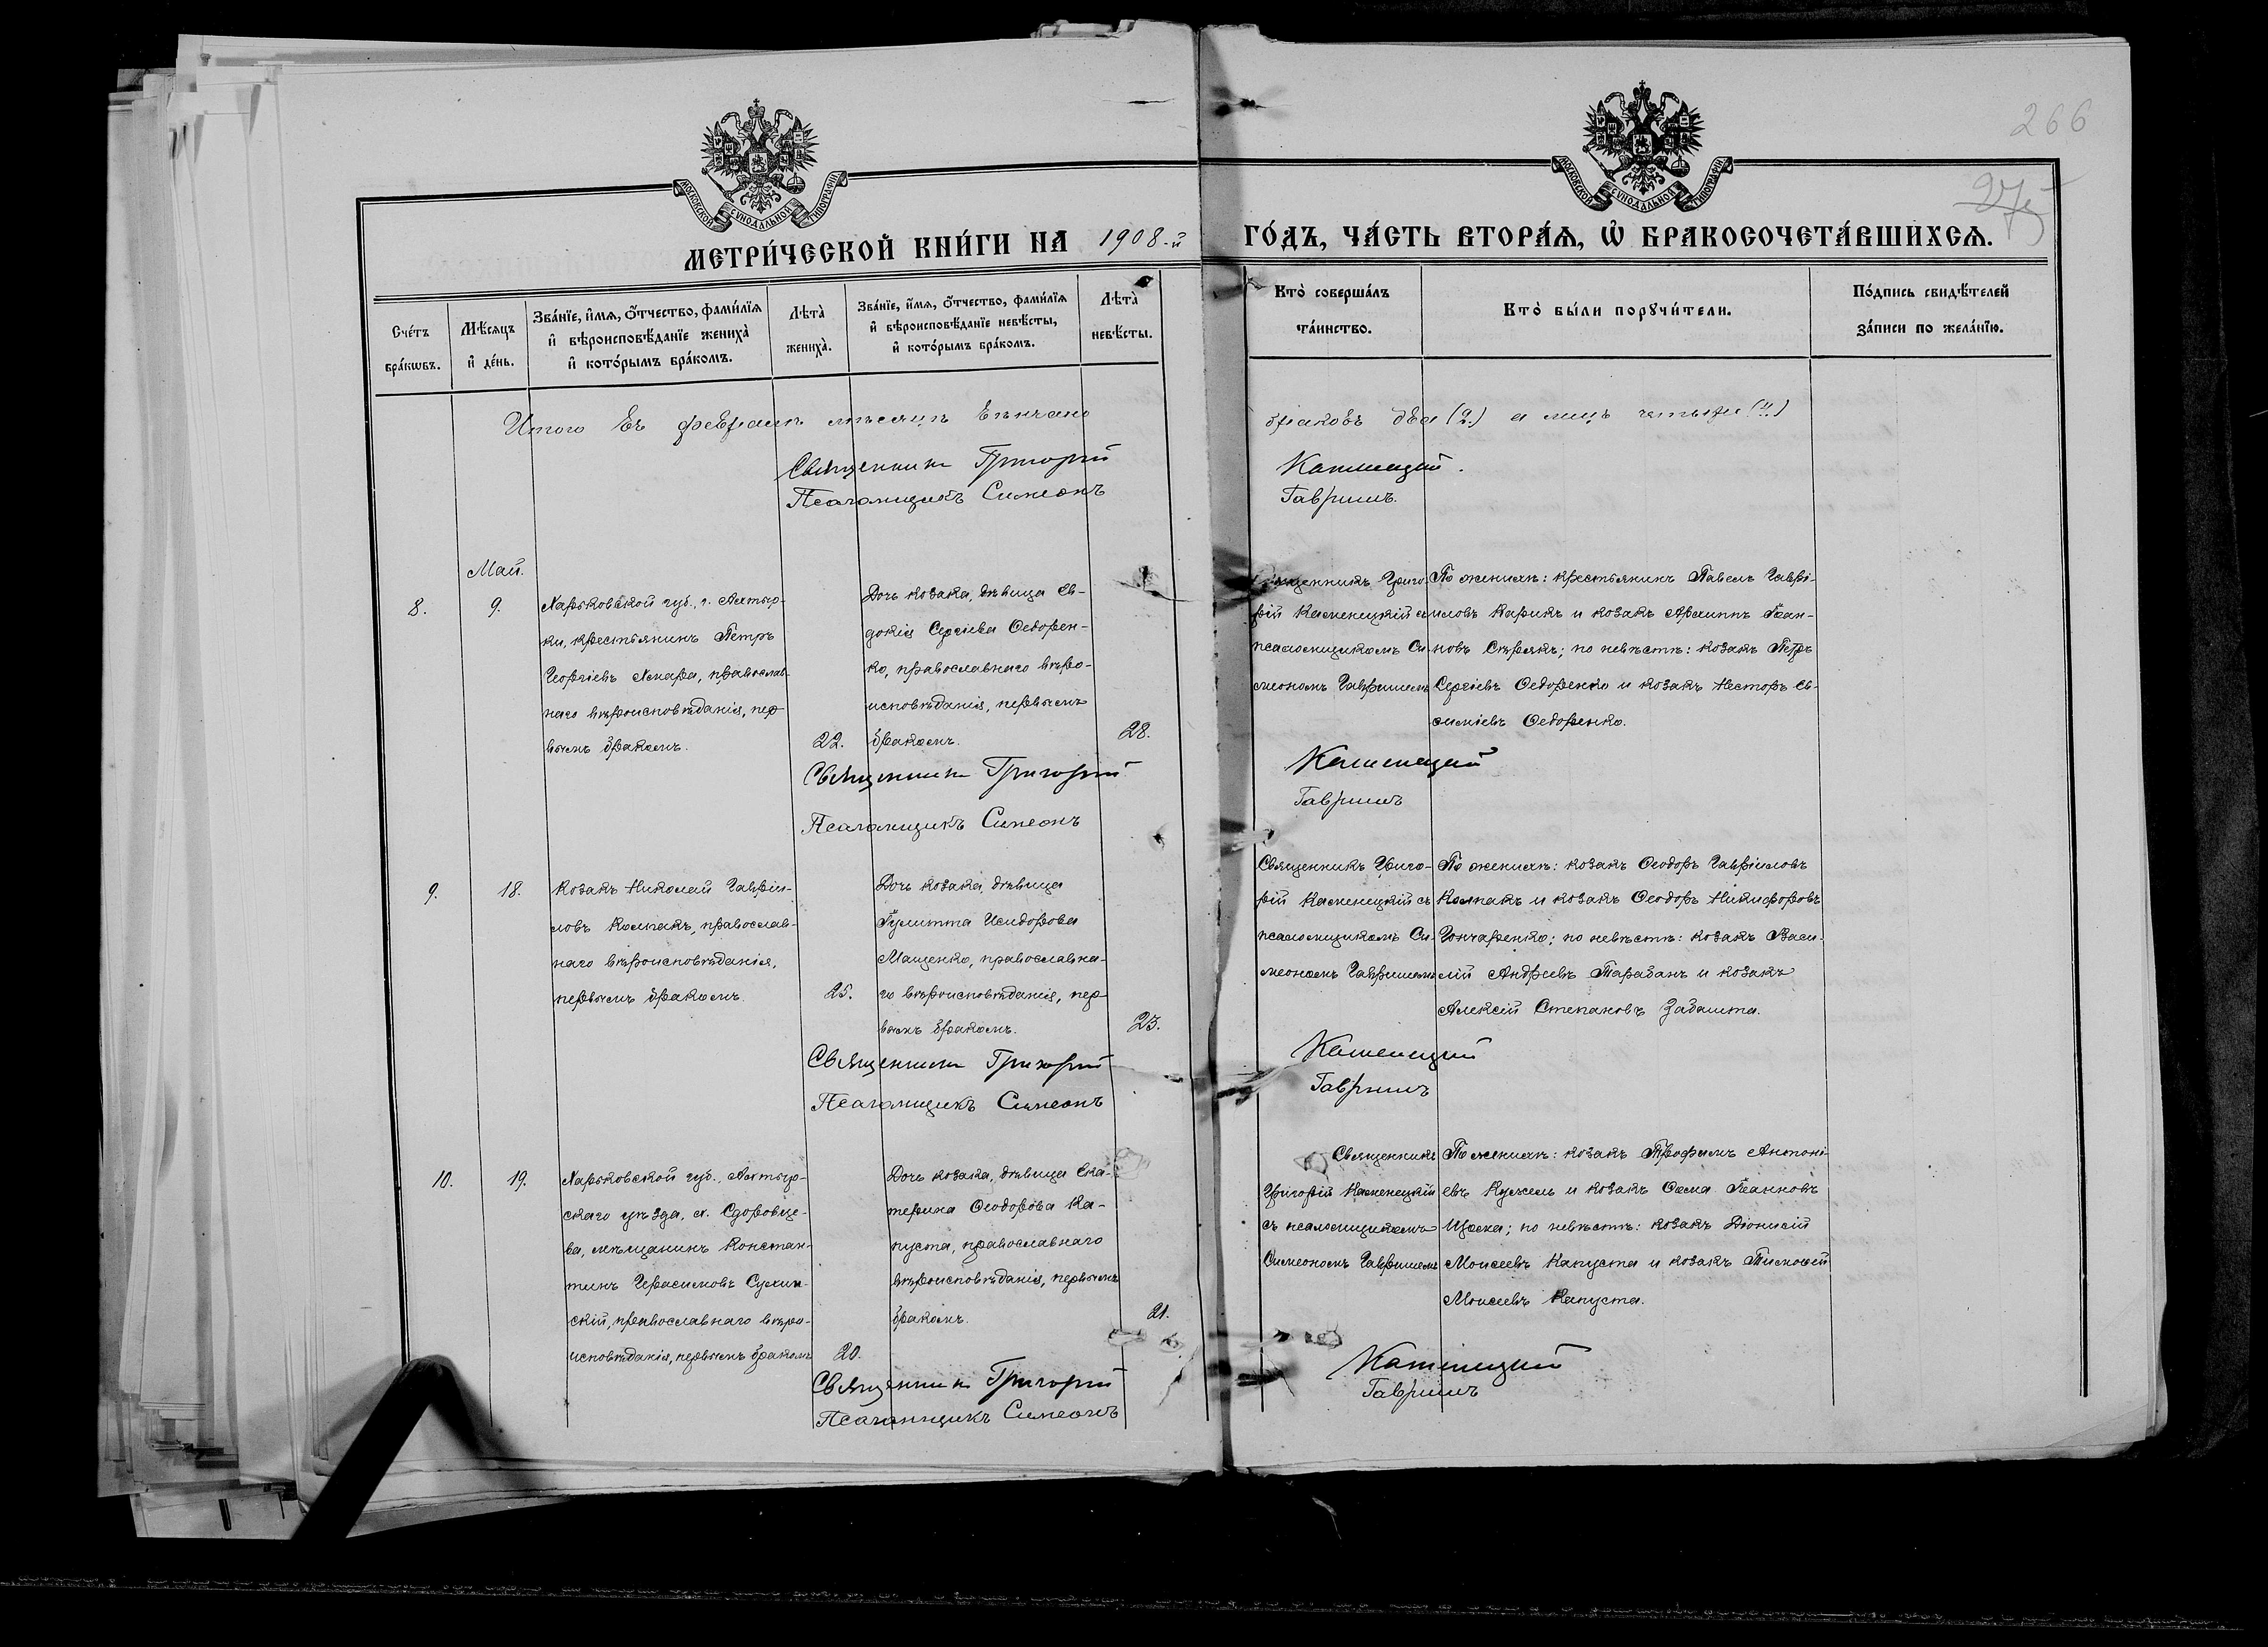 266
275
МОСКОВСКОЙ СѴНОДАЛЬНОЙ ТИПОГРАФІИ
МОСКОВСКОЙ СѴНОДАЛЬНОЙ ТИПОГРАФІИ
МЕТРИ́ЧЕСКОЙ КНИ́ГИ НА 1908-й ГО́ДЪ, ЧА́СТЬ ВТОРА́Я, Ѡ БРАКОСОЧЕТА́ВШИХСЯ.
Сче́тъ
бра́кѡвъ.
Мѣ́сяцъ
и҆ де́нь.
Зва́нїе, и҆́мя, ѻ҆́тчество, фами́лїя
и҆ вѣроисповѣ́данїе жениха̀
и҆ кото́рымъ бра́комъ.
Лѣта̀
жениха̀.
Зва́нїе, и҆́мя, ѻ҆́тчество, фами́лїя
и҆ вѣроисповѣ́данїе невѣ́сты,
и҆ кото́рымъ бра́комъ.
Лѣта̀
невѣ́сты.
Кто̀ соверша́лъ
та́инство.
Кто̀ бы́ли порꙋчи́тели.
По́дпись свидѣ́телей
за́писи по жела́нїю.
Итого въ февралѣ мѣсяцѣ вѣнчано браковъ два (2.) а лицъ четыре (4.)
Священникъ Григорій Каменецкій.
Псаломщикъ Симеонъ Гавришъ.
Май.
8.
9.
Харьковской губ., г. Ахтыр-
ки, крестьянинъ Петръ
Георгіевъ Хмара, православ-
наго вѣроисповѣданія, пер-
вымъ бракомъ.
22.
Дочь козака, дѣвица Ев-
докія Сергіева Ѳедорен-
ко, православнаго вѣро-
исповѣданія, первымъ
бракомъ.
28.
Священникъ Григо-
рій Каменецкій съ
псаломщикомъ Си-
меономъ Гавришемъ
По женихѣ: крестьянинъ Павелъ Гаврі-
иловъ Карикъ и козакъ Архиппъ Іоан-
новъ Сѣрякъ; по невѣстѣ: козакъ Петръ
Сергіевъ Ѳедоренко и козакъ Несторъ Ев-
ѳиміевъ Ѳедоренко.
Священникъ Григорій Каменецкій
Псаломщикъ Симеонъ Гавришъ
9.
18.
Козакъ Николай Гавріи-
ловъ Колпакъ, православ-
наго вѣроисповѣданія,
первымъ бракомъ.
25.
Дочь козака, дѣвица
Іулитта Исидорова
Мащенко, православна-
го вѣроисповѣданія, пер-
вымъ бракомъ.
23.
Священникъ Григо-
рій Каменецкій съ
псаломщикомъ Си-
меономъ Гавришемъ
По женихѣ: козакъ Ѳеодоръ Гавріиловъ
Колпакъ и козакъ Ѳеодоръ Никифоровъ
Гончаренко; по невѣстѣ: козакъ Васи-
лій Андреевъ Тарабанъ и козакъ
Алексій Степановъ Забашта.
Священникъ Григорій Каменецкій
Псаломщикъ Симеонъ Гавришъ
10.
19.
Харьковской губ., Ахтыр-
скаго уѣзда, х. Сдоровце-
ва, мѣщанинъ Констан-
тинъ Герасимовъ Сухин-
скій, православнаго вѣро-
исповѣданія, первымъ бракомъ
20.
Дочь козака, дѣвица Ека-
терина Ѳеодорова Ка-
пуста, православнаго
вѣроисповѣданія, первымъ
бракомъ.
21.
Священникъ
Григорій Каменецкій
съ псаломщикомъ
Симеономъ Гавришемъ
По женихѣ: козакъ Трофимъ Антоні-
евъ Кужель и козакъ Ѳома Іоанновъ
Щоха; по невѣстѣ: козакъ Діонисій
Моисеевъ Капуста и козакъ Тимоѳей
Моисеевъ Капуста.
Священникъ Григорій Каменецкій
Псаломщикъ Симеонъ Гавришъ